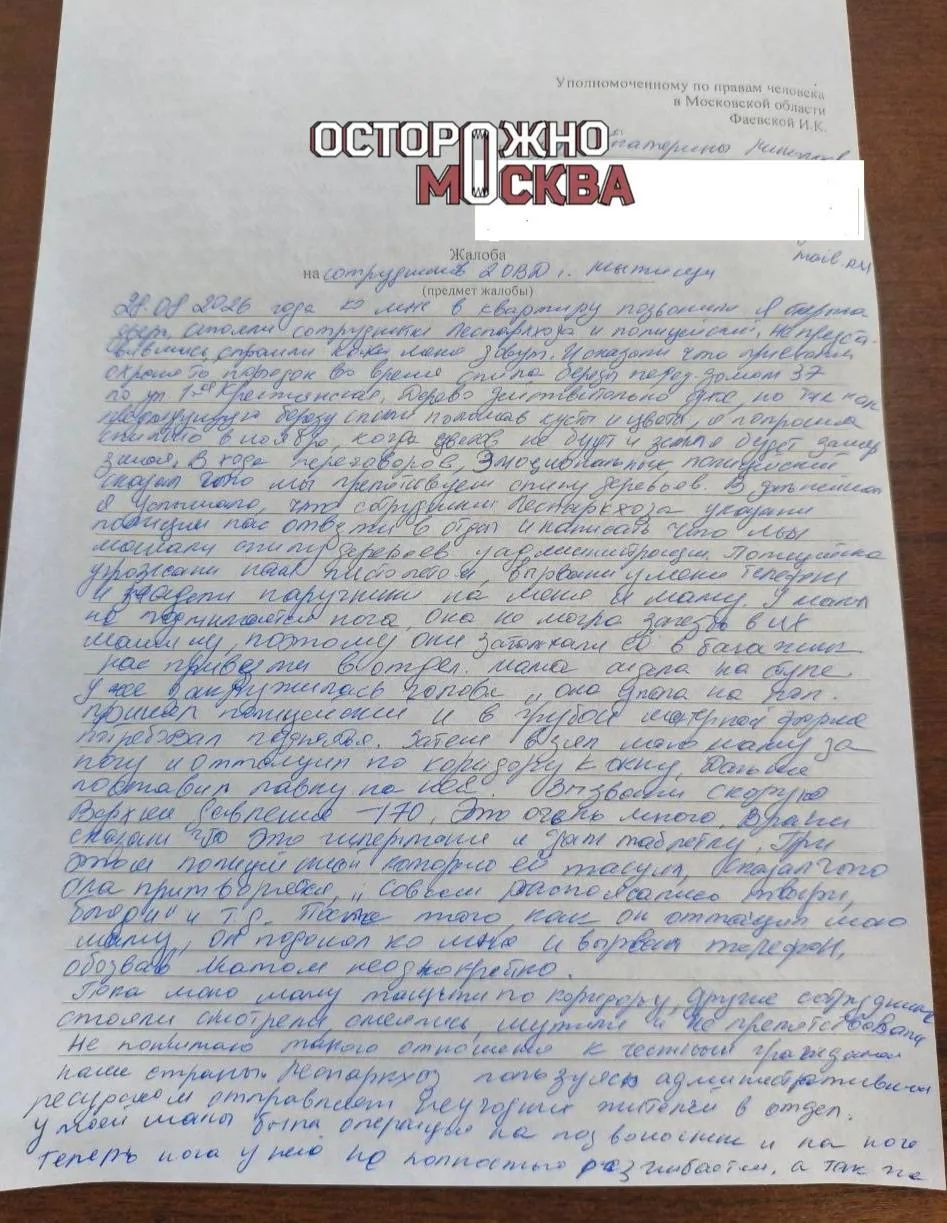 Уполномоченному по правам человека
в Московской области
Фаевской И.К.
ОСТОРОЖНО
МОСКВА
Екатерины
mail.ru
Жалоба
на сотрудников 2 ОВД г. Мытищи
(предмет жалобы)
28.08 2026 года ко мне в квартиру позвонили я открыла
дверь стояли сотрудники Леспаркхоза и полицейский. Не предста-
вившись спросили как меня зовут. И сказали что приехали
порядок во время спила березы перед домом 37
по ул. 1-ая Крестьянская. Дерево действительно но так как
березу спили поломав кусты и цветы, я попросила
в ноябре, когда цветов не будет и земля будет замер
В ходе переговоров, эмоциональных полицейский
сказал что мы препятствуем спилу деревьев. В дальнейшем
я услышала, что сотрудники Леспаркхоза указали
полиции нас отвезти в отдел и написать что мы
мешали спилу деревьев у администрации. Полицейские
угрожали нам пистолетом, вырвали у меня телефон
и надели наручники на меня и маму. У мамы
не поднимается нога, она не могла залезть в их
машину, поэтому они затолкали её в багажник
нас привезли в отдел. мама сидела на стуле
у нее закружилась голова, она упала на пол.
пришел полицейский и в грубой матерной форме
потребовал подняться. Затем взял мою маму за
ногу и оттащил по коридору к окну, Дальше
поставил лавку на неё. Вызвали скорую
Верхнее давление - 170. Это очень много. Врачи
сказали что это гипертония и дали таблетку. При
этом полицейский который её тащил, сказал что
она притворялась, "совсем распоясались твари,
и т.д. После того, как он оттащил мою
маму, он подошел ко мне и вырвал телефон,
обозвав матом неоднократно.
Пока мою маму тащили по коридору, другие сотрудники
стояли смотрели, смеялись, шутили и не препятствовали
Не понимаю такого отношения к честным гражданам
нашей страны. Леспаркхоз пользуясь административным
ресурсом отправляет неугодных жителей в отдел.
у моей мамы была операция на позвоночнике и на ноге
теперь нога у неё не полностью разгибается, а так же